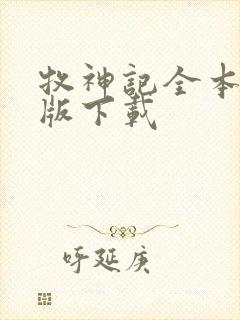 牧神記全本
版下載
呼延庚